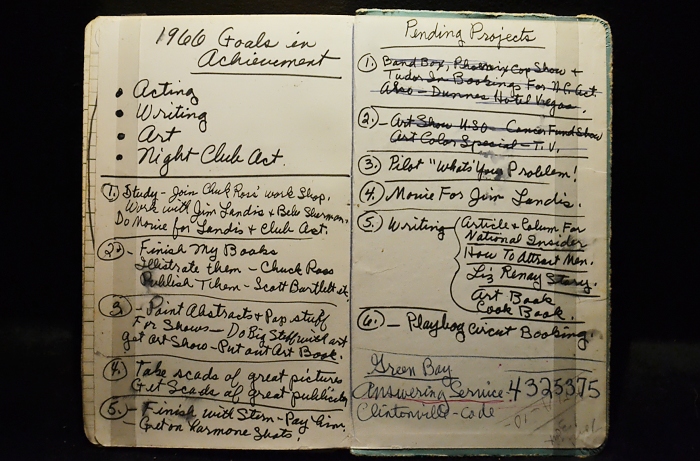 1966 Goals in
Achievement
• Acting
• Writing
• Art
• Night Club Act.
1. Study - Join Chuk Ross' work Shop.
Work with Jim Landis & Bebe Sherman.
Do Movie for Landis & Club Act.
2 - Finish My Books
Illistrate them - Chuck Ross
Publish Them - Scott Bartlett
3 - Paint Abstracts & Pop stuff
For Shows - Do Big Stuff with art
get Art Show - Put out Art Book.
4. Take scads of great pictures
Get Scads of great publicity
5. - Finish with Stern - Pay him.
Get on Harmone Shots.
Pending Projects
1. Band Box, Phoenix Cop Show &
Tudor In Bookings For N.C. Act.
Also - Dunnes Hotel Vegas.
2. - Art Show USO - Cancer Fund Show
Art Color Special - T.V.
3. Pilot "Whats' Your Problem!
4. Movie For Jim Landis.
5. Writing - Article & Colum For
National Insider
How To Attract Men.
Liz Renay Story.
Art Book
Cook Book.
6. - Playboy Circut Booking.
Green Bay
Answering Service. 4325375
Clintonville - Code